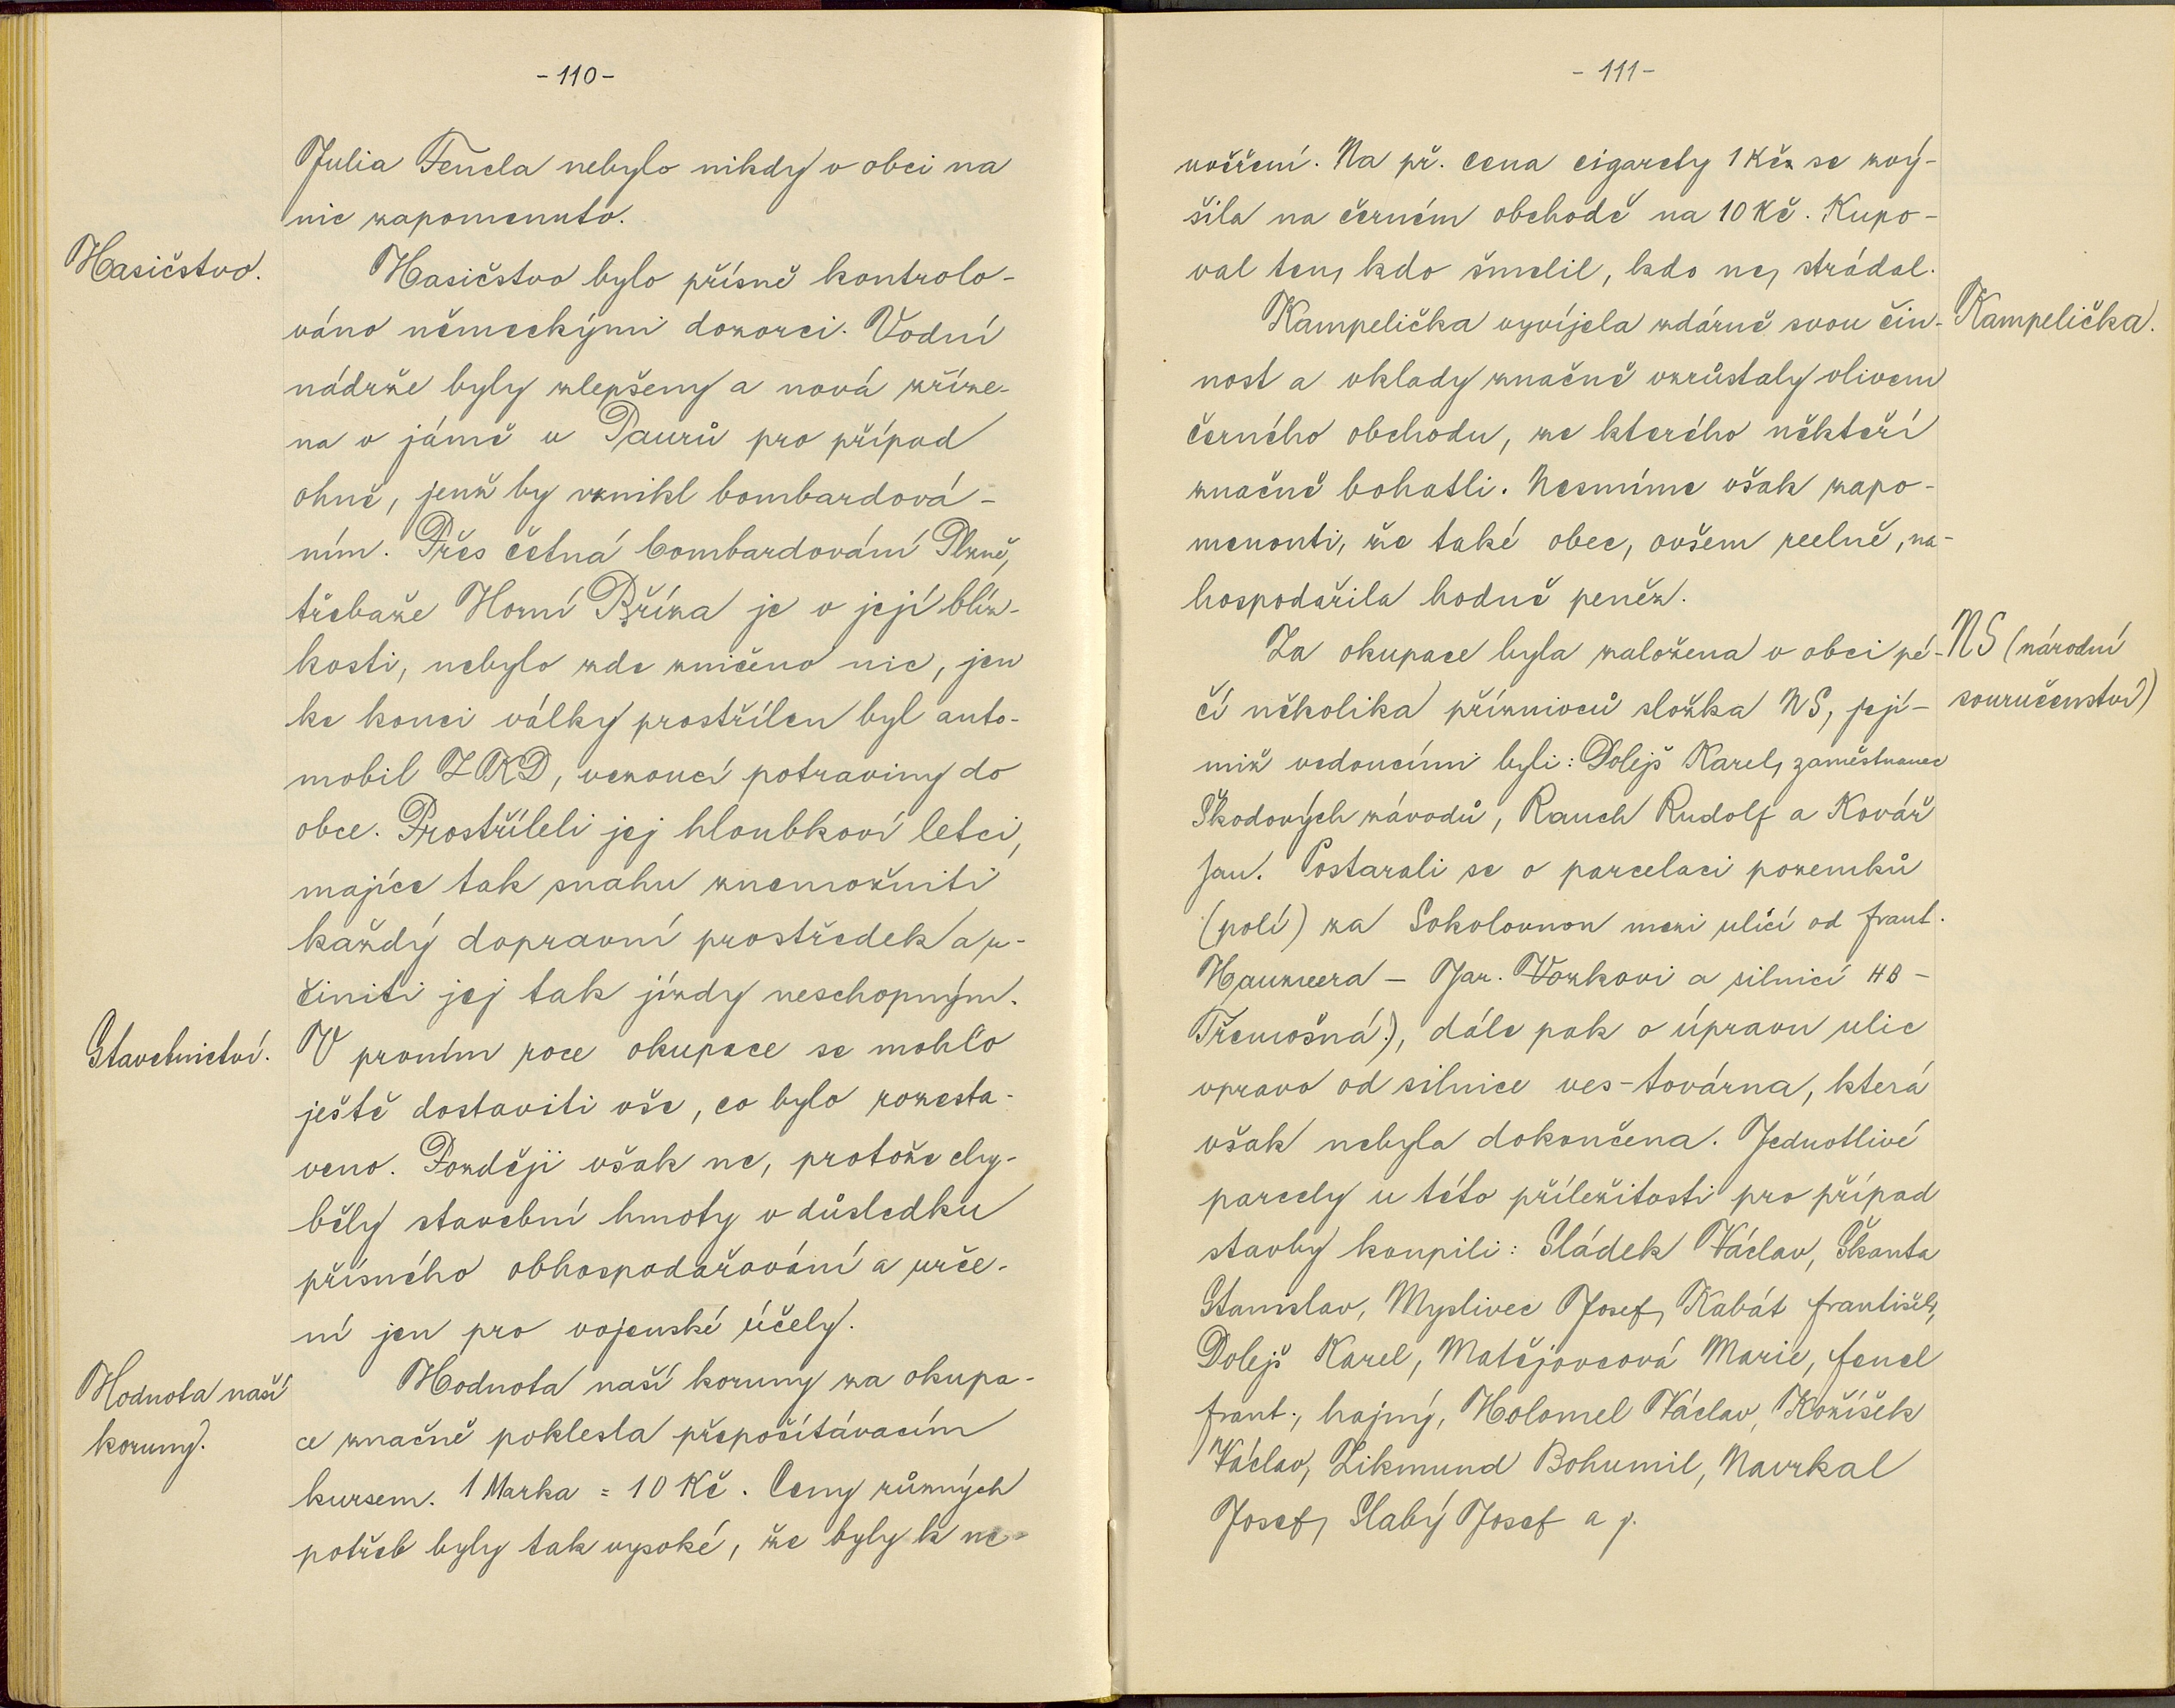 -110-
Julia Fencla nebylo nikdy v obci na
nic zapomenuto.
Hasičstvo.
Hasičstvo bylo přísně kontrolo-
váno německými dozorci. Vodní
nádrže byly zlepšeny a nová zříze-
na v jámě u Paurů pro případ
ohně, jenž by vznikl bombardová-
ním. Přes četná bombardování Plzně,
třebaže Horní Bříza je v její blíz-
kosti, nebylo zde zničeno nic, jen
ke konci války prostřílen byl auto-
mobil ZKD, vezoucí potraviny do
obce. Prostříleli jej hloubkoví letci,
majíce tak snahu znemožniti
každý dopravní prostředek a u-
činiti jej tak jízdy neschopným.
Stavebnictví.
V prvním roce okupace se mohlo
ještě dostaviti vše, co bylo rozesta-
veno. Později však ne, protože chy-
běly stavební hmoty v důsledku
přísného obhospodařování a urče-
ní jen pro vojenské účely.
Hodnota naší
koruny.
Hodnota naší koruny za okupa-
ce značně poklesla přepočítávacím
kursem. 1 Marka = 10 Kč. Ceny různých
potřeb byly tak vysoké, že byly k ne-
-111-
uvěření. Na př. cena cigarety 1 Kčz se zvý-
šila na černém obchodě na 10 Kč. Kupo-
val ten, kdo šmelil, kdo ne, strádal.
Kampelička.
Kampelička vyvíjela zdárně svou čin-
nost a vklady značně vzrůstaly vlivem
černého obchodu, ze kterého někteří
značně bohatli. Nesmíme však zapo-
menouti, že také obec, ovšem reelně, na-
hospodařila hodně peněz.
NS (národní
souručenství)
Za okupace byla založena v obci pé-
čí několika příznivců složka NS, její-
miž vedoucími byli: Dolejš Karel, zaměstnanec
Škodových závodů, Rauch Rudolf a Kovář
Jan. Postarali se o parcelaci pozemků
(polí) za Sokolovnou mezi ulicí od Frant.
Jar. Vozkovi a silnicí HB-
Třemošná), dále pak o úpravu ulic
vpravo od silnice ves-továrna, která
však nebyla dokončena. Jednotlivé
parcely u této příležitosti pro případ
stavby koupili: Sládek Václav, Škanta
Stanislav, Myslivec Josef, Kabát František,
Dolejš Karel, Matějovcová Marie, Fencl
Frant., hajný, Holomel Václav, Kožíšek
Václav, Zikmund Bohumil, Navrkal
Josef, Slabý Josef a j.